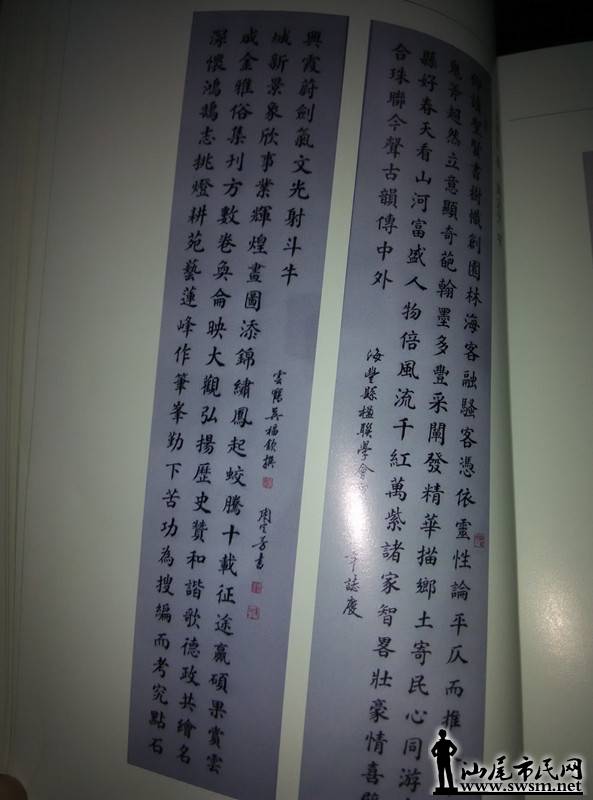 仰讀聖賢書樹幟創園林海客融騷客憑依靈性論平仄而推
鬼斧超然立意顯奇葩翰墨多豐采闡發精華描鄉土寄民心同游
縣好春天看山河富盛人物倍風流千紅萬紫諸家智畧壯豪情喜
合珠聯今聲古韻傳中外
海豐縣楹聯學會
年誌慶
深懷鴻鵠志挑燈耕苑藝蓮峰作筆峯勤下苦功為搜編而考究點石
成金雅俗集刊方數卷奐侖映大觀弘揚歷史贊和諧歌德政共繪名
城新景象欣事業輝煌畫圖添錦繡鳳起蛟騰十載征途贏碩果賞雲
興霞蔚劍氣文光射斗牛
雲鶴吳福欽撰
周芳書
汕尾市民网
www.swsm.net